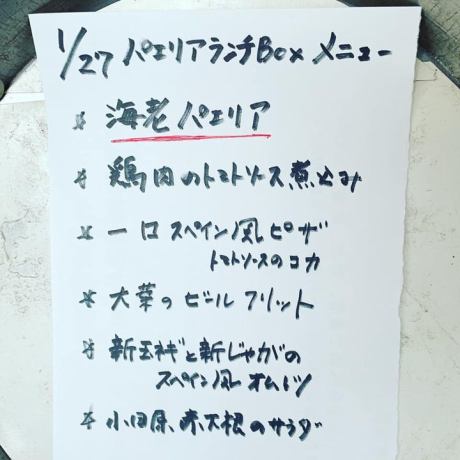 1/27 パエリアランチBox メニュー
* 海老パエリア
* 鶏肉のトマトソース煮込み
* 一口スペイン風ピザ
トマトソースのコカ
* 大葉のビールフリット
* 新玉ネギと新じゃがの
スペイン風オムレツ
* 小田原、赤大根のサラダ